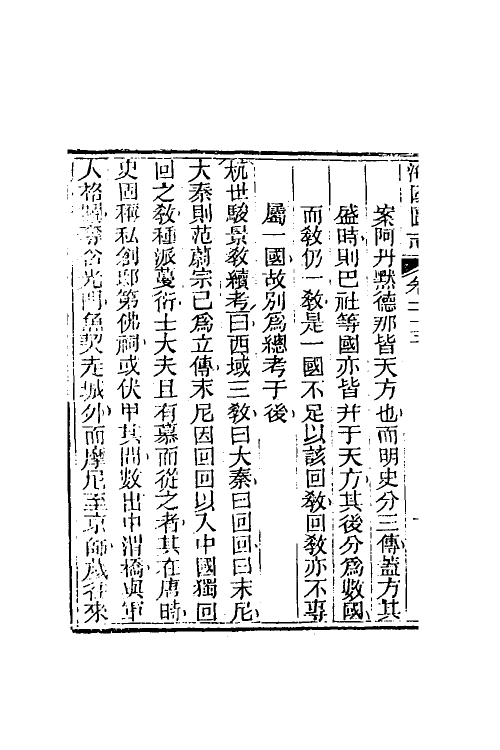 海國圖志 卷二十三
案阿丹默德那皆天方也而明史分三傳蓋方其
盛時則巴社等國亦皆幷于天方其後分爲數國
而敎仍一敎是一國不足以該回敎回敎亦不專
屬一國故別爲總考于後
杭世駿景敎續考曰西域三敎曰大秦曰回回曰末尼
大秦則范蔚宗已爲立傳末尼因回回以入中國獨回
回之敎種派蔓衍士大夫且有慕而從之者其在唐時
史固稱私創邸第佛祠或伏甲其間數出中渭橋與軍
人格鬭奪含光門魚契走城外而摩尼至京師歲往來